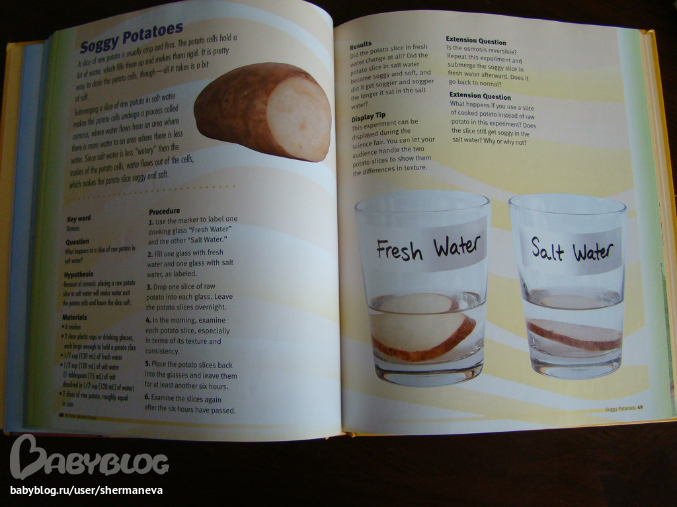 Soggy Potatoes
A slice of raw potato is usually crisp and firm. The potato cells hold a
lot of water, which fills them up and makes them rigid. It is pretty
easy to dehydrate the potato cells, though—all it takes is a bit
of salt.
Submerging a slice of raw potato in salt water
makes the potato cells undergo a process called
osmosis, where water flows from an area where
there is more water to an area where there is less
water. Since salt water is less "watery" than the
insides of the potato cells, water flows out of the cells,
which makes the potato slice soggy and soft.
Key word
Osmosis
Question
What happens to a slice of raw potato in
salt water?
Hypothesis
Because of osmosis, placing a raw potato
slice in salt water will make water exit
the potato cells and leave the slice soft.
Materials
• A marker
• 2 clear plastic cups or drinking glasses,
each large enough to hold a potato slice
• 1/2 cup (120 mL) of fresh water
• 1/2 cup (120 mL) of salt water
(1 tablespoon [15 mL] of salt
dissolved in 1/2 cup [120 mL] of water)
• 2 slices of raw potato, roughly equal
in size
Procedure
1. Use the marker to label one
drinking glass "Fresh Water"
and the other "Salt Water."
2. Fill one glass with fresh
water and one glass with salt
water, as labeled.
3. Drop one slice of raw
potato into each glass. Leave
the potato slices overnight.
4. In the morning, examine
each potato slice, especially
in terms of its texture and
consistency.
5. Place the potato slices back
into the glasses and leave them
for at least another six hours.
6. Examine the slices again
after the six hours have passed.
Results
Did the potato slice in fresh
water change at all? Did the
potato slice in salt water
become soggy and soft, and
did it get soggier and soggier
the longer it sat in the salt
water?
Display Tip
This experiment can be
displayed during the
science fair. You can let your
audience handle the two
potato slices to show them
the differences in texture.
Extension Question
Is the osmosis reversible?
Repeat this experiment and
submerge the soggy slice in
fresh water afterward. Does it
go back to normal?
Extension Question
What happens if you use a slice
of cooked potato instead of raw
potato in this experiment? Does
the slice still get soggy in the
salt water? Why or why not?
Fresh Water
Salt Water
Soggy Potatoes 49
BABYBLOG
babyblog.ru/user/shermaneva